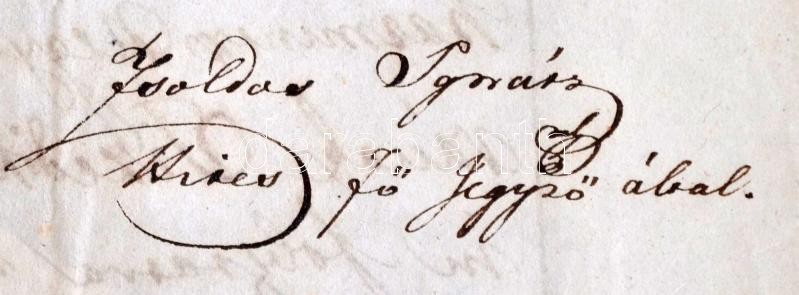 Zsoldos Ignácz
Hites fő Jegyző által.
darabanth